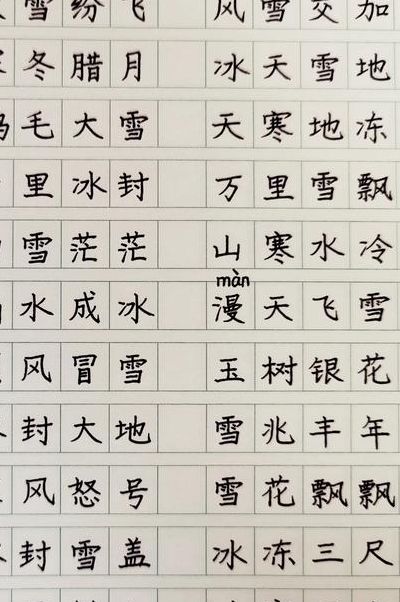 雪纷飞 风雪交加
冬腊月 冰天雪地
毛大雪 天寒地冻
里冰封 万里雪飘
雪茫茫 山寒水冷
màn
水成冰 漫天飞雪
风冒雪 玉树银花
封大地 雪兆丰年
风怒号 雪花飘飘
封雪盖 冰冻三尺